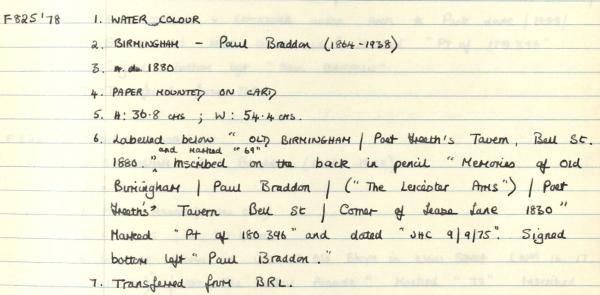 F825'78 1. WATER COLOUR
2. BIRMINGHAM - Paul Braddon (1864-1938)
3. 1880
4. PAPER MOUNTED ON CARD
5. H: 36.8 cms ; W: 54.4 cms.
6. Labelled below "OLD BIRMINGHAM | Poet Freeth's Tavern, Bell St.
and marked "69"
1880". Inscribed on the back in pencil "Memories of Old
Birmingham | Paul Braddon | ("The Leicester Arms") | Poet
Freeth's Tavern Bell St | Corner of Lease Lane 1830"
Marked "Pt of 180396" and dated "JHC 9/9/75". Signed
bottom left "Paul Braddon."
7. Transferred from BRL.